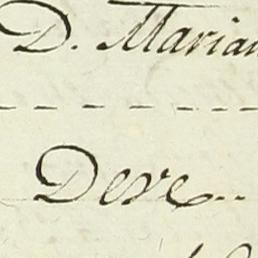 D. Marian
Deve..